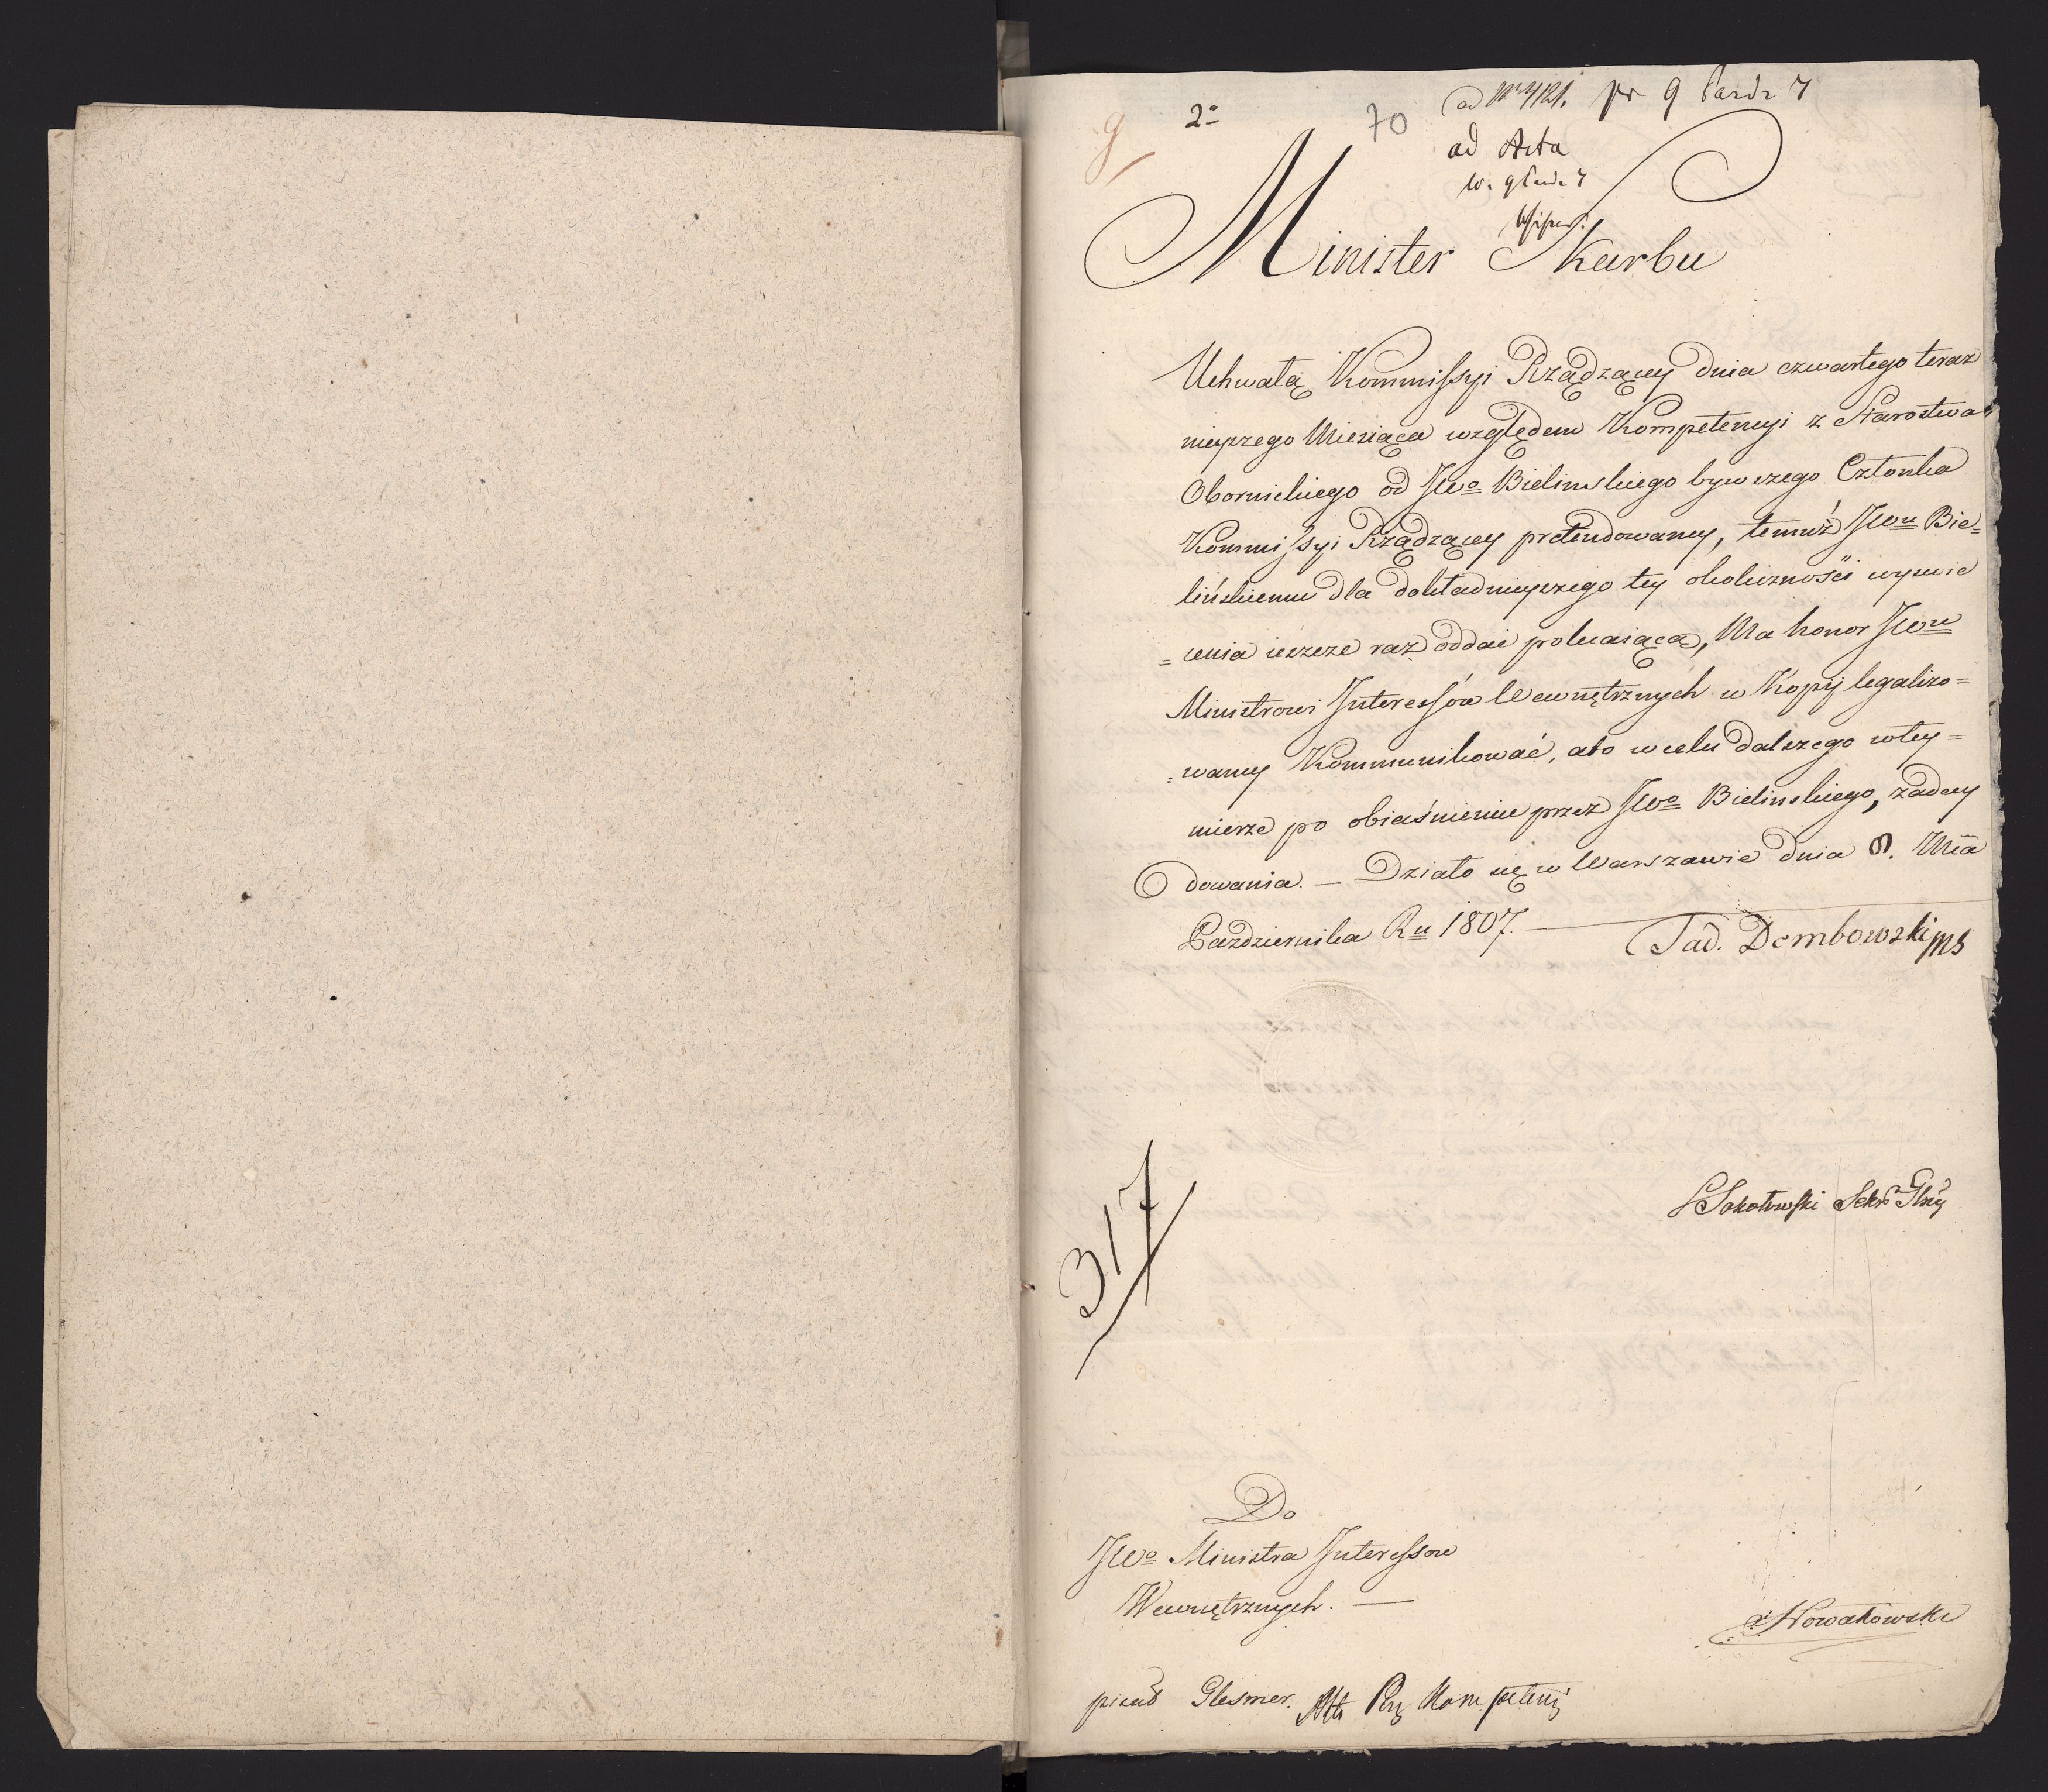 2o 70 ad No 4121. pr 9 Pazdr 7
ad Acta
w. 9 Pazdr 7
Minister Skarbu
Uchwałą Kommissyi Rządzącey dnia czwartego teraz
nieyszego Miesiąca względem Kompetencyi z Starostwa
Obornickiego od JWo Bielinskiego bywszego Członka
Kommissyi Rządzącey pretendowaney, temuż JWu Bie=
lińskiemu dla dokładnieyszego tey okoliczności wyswie
=cenia ieszcze raz oddać polecaiącą, Ma honor JWu
Ministrowi Interessów Wewnętrznych w Kopij legalizo=
=waney Kommunikować, a to w celu dalszego w tey=
mierze po obiaśnieniu przez JWo Bielinskiego, zadecy
dowania. — Działo się w Warszawie dnia 8. Mca
Pazdziernika Ru 1807. —
Tad. Dembowski MS
Sokołowski Sekr Glny
317
Do
JWo Ministra Interessow
Wewnętrznych. —
Nowakowski
pisał Glesmer. Akta Przy Kompetencyi